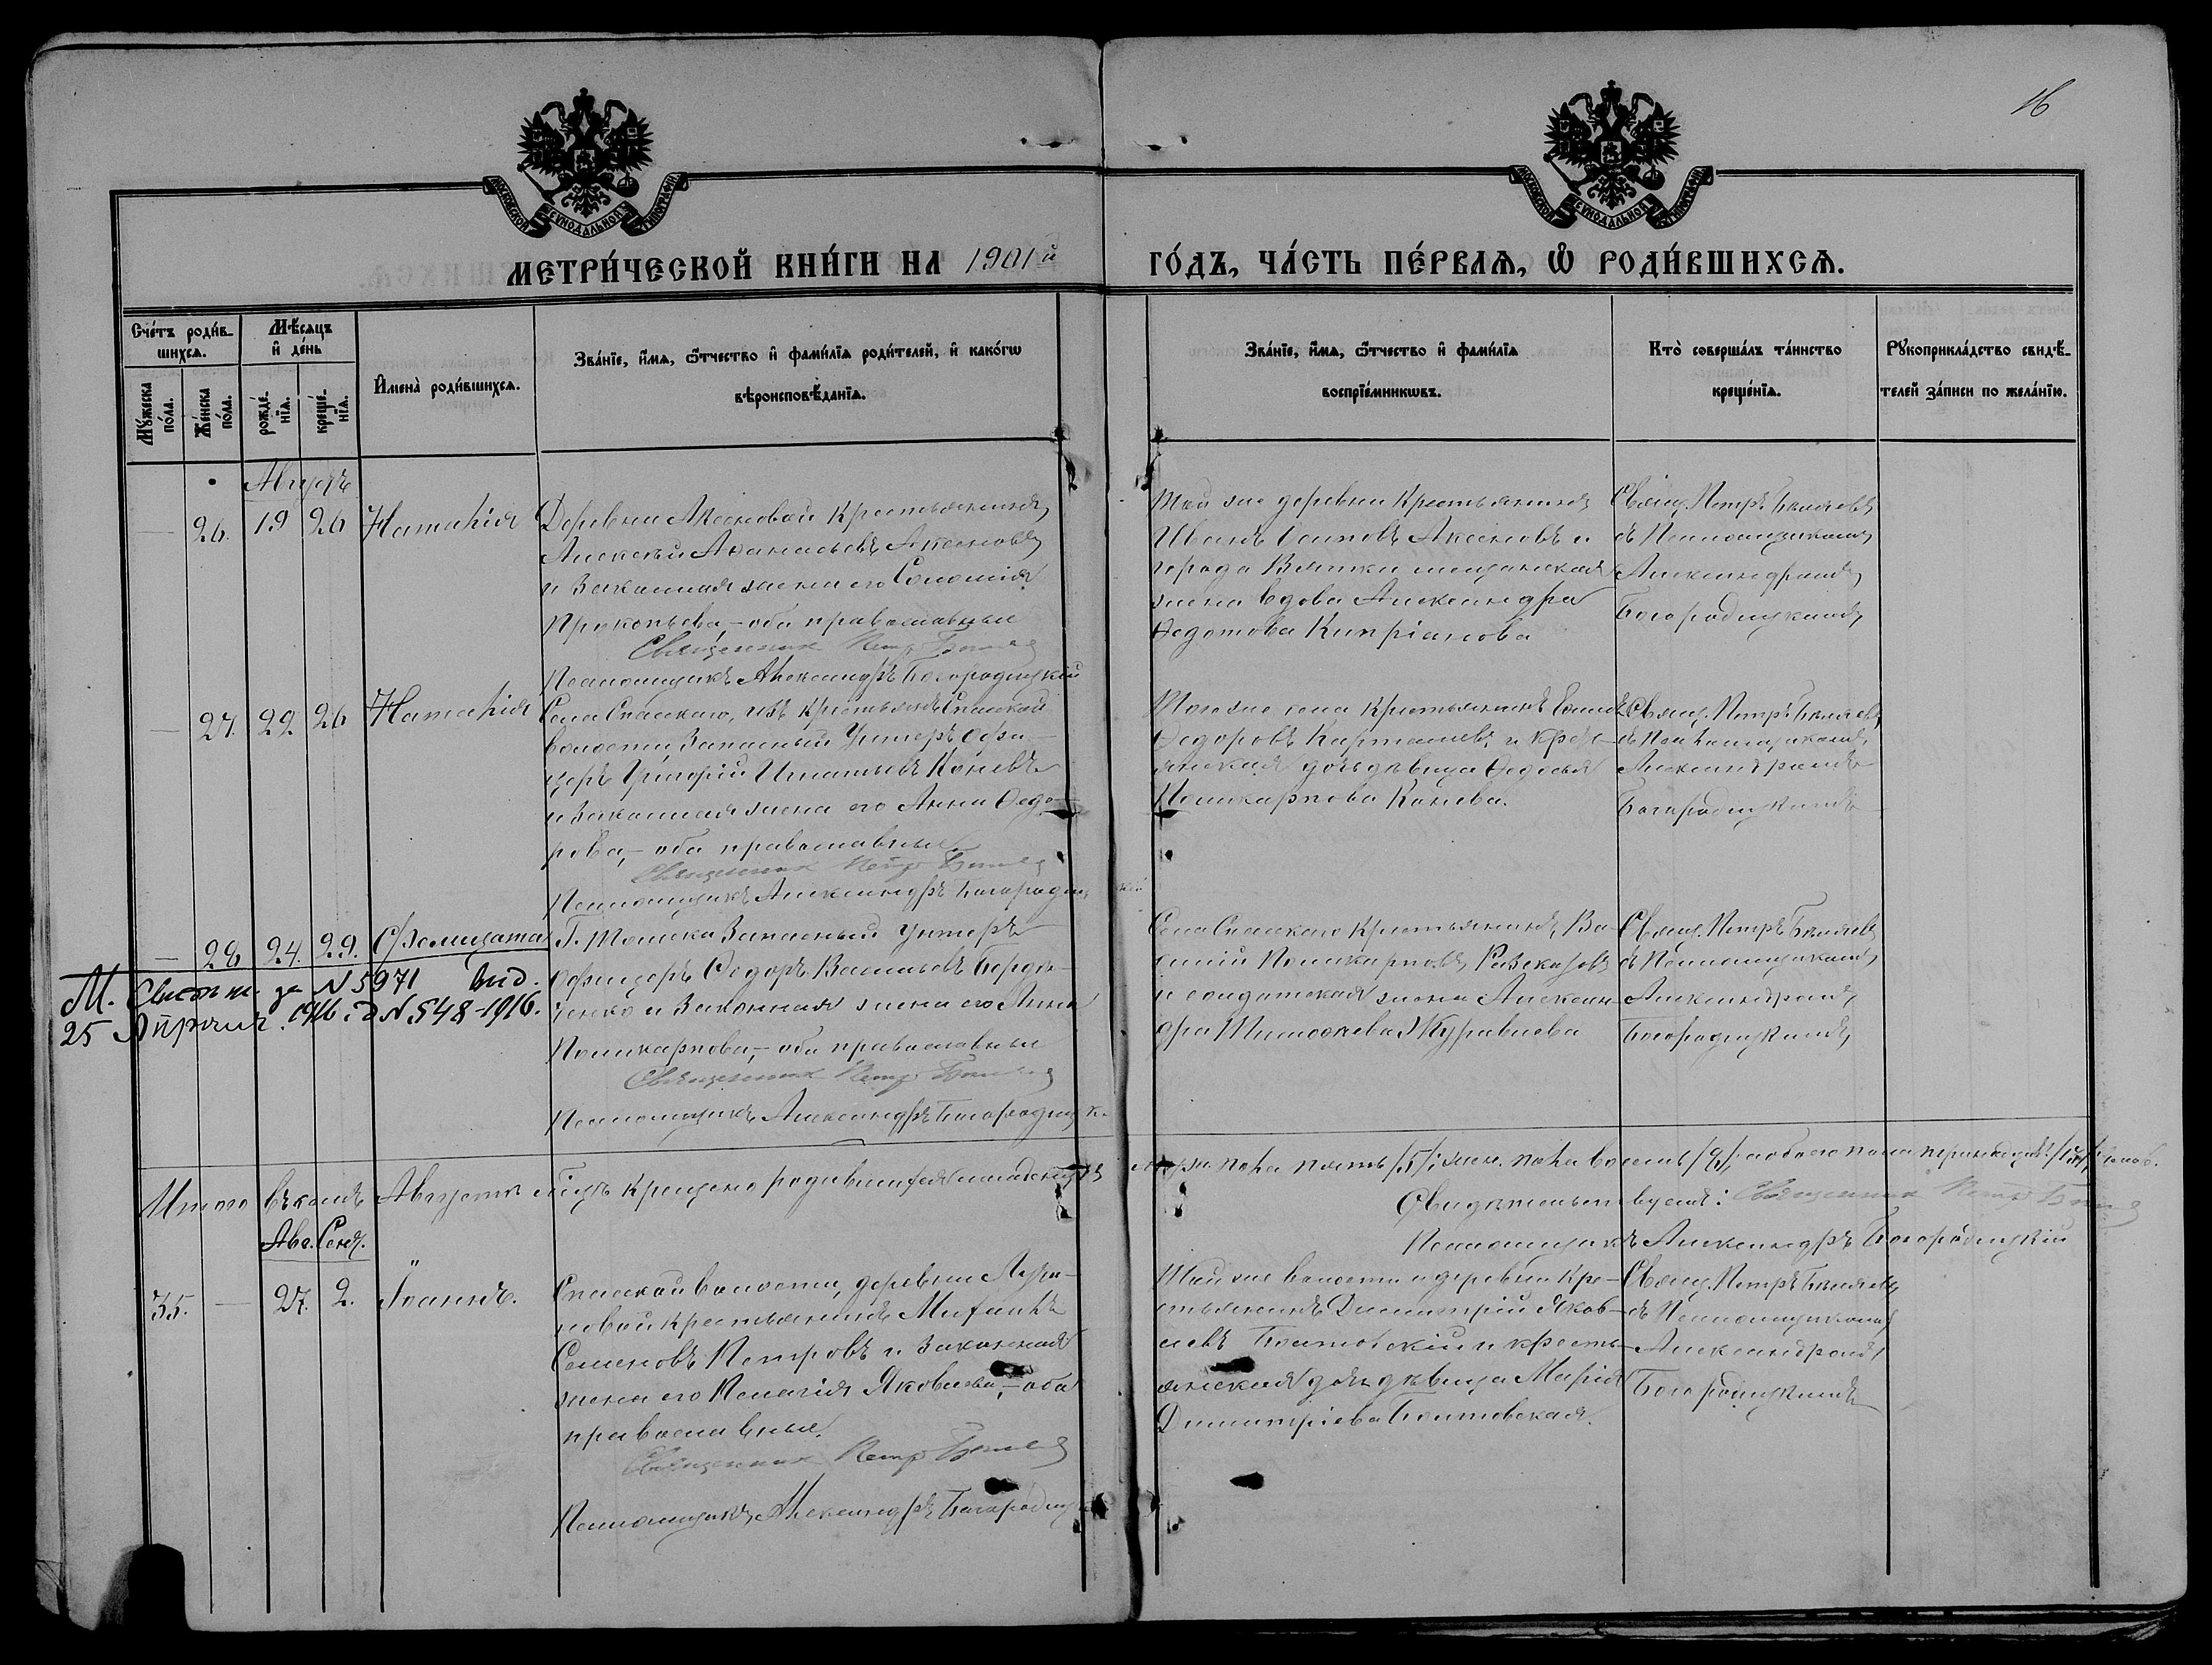 16
МОСКОВСКОЙ СѴНОДАЛЬНОЙ ТИПОГРАФІИ
МОСКОВСКОЙ СѴНОДАЛЬНОЙ ТИПОГРАФІИ
МЕТРИ́ЧЕСКОЙ КНИ́ГИ НА 1901й ГО́ДЪ, ЧА́СТЬ ПЕ́РВАѦ, Ѽ РОДИ́ВШИХСѦ.
Сче́тъ роди́в-
шихсѧ.
Мѣ́сѧцъ
и҆ де́нь
Мꙋ́жеска
по́ла.
Же́нска
по́ла.
рожде́-
нїѧ.
креще́-
нїѧ.
И҆мена̀ роди́вшихсѧ.
Зва́нїе, и҆́мѧ, ѻ҆́тчество и҆ фами́лїѧ роди́телей, и҆ како́гѡ
вѣроисповѣ́данїѧ.
Зва́нїе, и҆́мѧ, ѻ҆́тчество и҆ фами́лїѧ
воспрїе́мникѡвъ.
Кто̀ соверша́лъ та́инство
креще́нїѧ.
Рꙋкоприкла́дство свидѣ́-
телей за́писи по жела́нїю.
Августъ
26. 19 26 Наталія
Деревни Аксеновой крестьянинъ
Алексѣй Аѳанасьевъ Аксеновъ
и законная жена его Соломія
Прокопьева, – оба православные
Священник Петр
Псаломщикъ Александръ Богородицкій
Той же деревни крестьянинъ
Иванъ Осиповъ Аксеновъ и
города Вятки мещанская
жена вдова Александра
Ѳедотова Кипріанова
Свящ. Петръ Бѣляевъ
съ Псаломщикомъ
Александромъ
Богородицкимъ
27. 22. 26 Наталія
Села Спасскаго, изъ крестьянъ Спасской
волости запасный Унтеръ Офи-
церъ Григорій Игнатьевъ Коневъ
и законная жена его Анна Ѳедо-
рова, – оба православные
Священник Петр
Псаломщикъ Александръ Богородицкій
Того же села крестьянинъ
Ѳедоровъ Карташевъ и кресть-
янская дочь дѣвица Ѳедосья
Поликарпова Конева.
Свящ. Петръ Бѣляевъ
съ Псаломщикомъ
Александромъ
Богородицкимъ
28 24. 29. Фелицата
Г. Томска запасный Унтеръ
Офицеръ Ѳедоръ Васильевъ
и законная жена его Анна
Поликарпова, – оба православные
Священник Петр
Псаломщикъ Александръ Богородицк.
Села Спасскаго крестьянинъ Ва-
силій Поликарповъ и солдатская жена Алексан-
дра Тимоѳеева Журавлева
Свящ. Петръ Бѣляевъ
съ Псаломщикомъ
Александромъ
Богородицкимъ
М. Свид. за N 5971 выд.
25 Апрѣля 1916 г. N 548–1916.
Итого въ семъ Августѣ мѣсяцѣ крещено родившихся младенцевъ муж. пола пять /5/, жен. пола восемь /8/, обоего пола тринадцать /13/
Свидѣтельствуемъ: Священник Петр
Псаломщикъ Александръ Богородицкій
Авг. Сент.
35. – 27. 2. Іоаннъ.
Спасской волости, деревни
крестьянинъ Михаилъ
Семеновъ Петровъ и законная
жена его Пелагія Яковлева, – оба
православные.
Священник Петр
Псаломщикъ Александръ Богородицк
Той же волости и деревни кре-
стьянинъ Димитрій Яков-
левъ Болтовскій и кресть-
янская дочь дѣвица Марія
Димитріева Болтовская.
Свящ. Петръ Бѣляевъ
съ Псаломщикомъ
Александромъ
Богородицкимъ